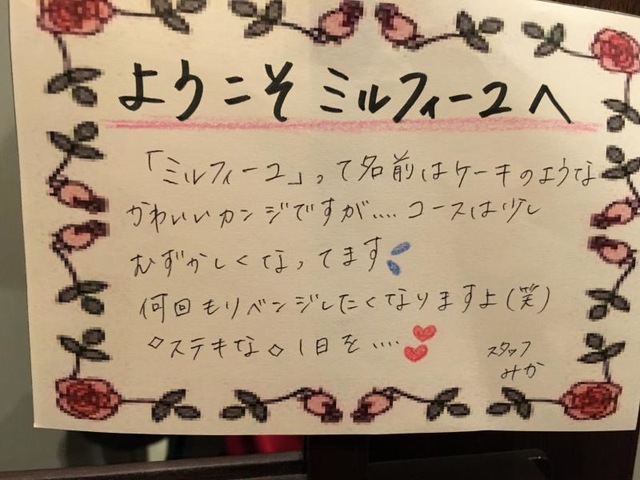 ようこそ ミルフィーユへ
「ミルフィーユ」って名前はケーキのような
かわいいカンジですが.... コースは少し
むずかしくなってます
何回もリベンジしたくなりますよ(笑)
◇ステキな◇1日を....
スタッフ
みか